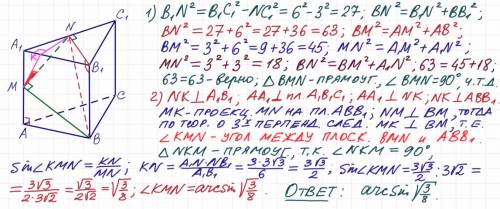 C₁
N
A₁
K
B₁
M
C
A
B
1) B₁N² = B₁C₁² - NC₁² = 6² - 3² = 27; BN² = B₁N² + BB₁²;
BN² = 27 + 6² = 27 + 36 = 63; BM² = AM² + AB²;
BM² = 3² + 6² = 9 + 36 = 45; MN² = A₁M² + A₁N²;
MN² = 3² + 3² = 18; BN² = BM² + MN²; 63 = 45 + 18;
63 = 63 - верно; △BMN - прямоуг, ∠BMN = 90°, ч.т.д.
2) NK ⊥ A₁B₁; AA₁ ⊥ пл. A₁B₁C₁; AA₁ ⊥ NK; NK ⊥ ABB₁
MK - проекц. MN на пл. ABB₁; NM ⊥ BM, тогда
по теор. о 3ˣ перпенд след. MK ⊥ BM, т.е.
∠KMN - угол между плоск. BMN и ABB₁.
△NKM - прямоуг, т.к. ∠NKM = 90°
sin∠KMN = KN/MN; KN = A₁N·NB₁/A₁B₁ = 3·3√3/6 = 3√3/2, sin∠KMN = 3√3/2 : 3√2 =
= 3√3/2·3√2 = √3/2√2 = √3/8; ∠KMN = arcsin√3/8. Ответ: arcsin√3/8.